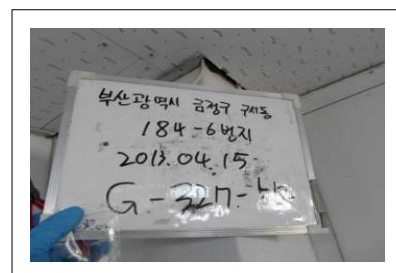 부산광역시 금정구 구서동
184-6번지
2013.04.15
G-327-